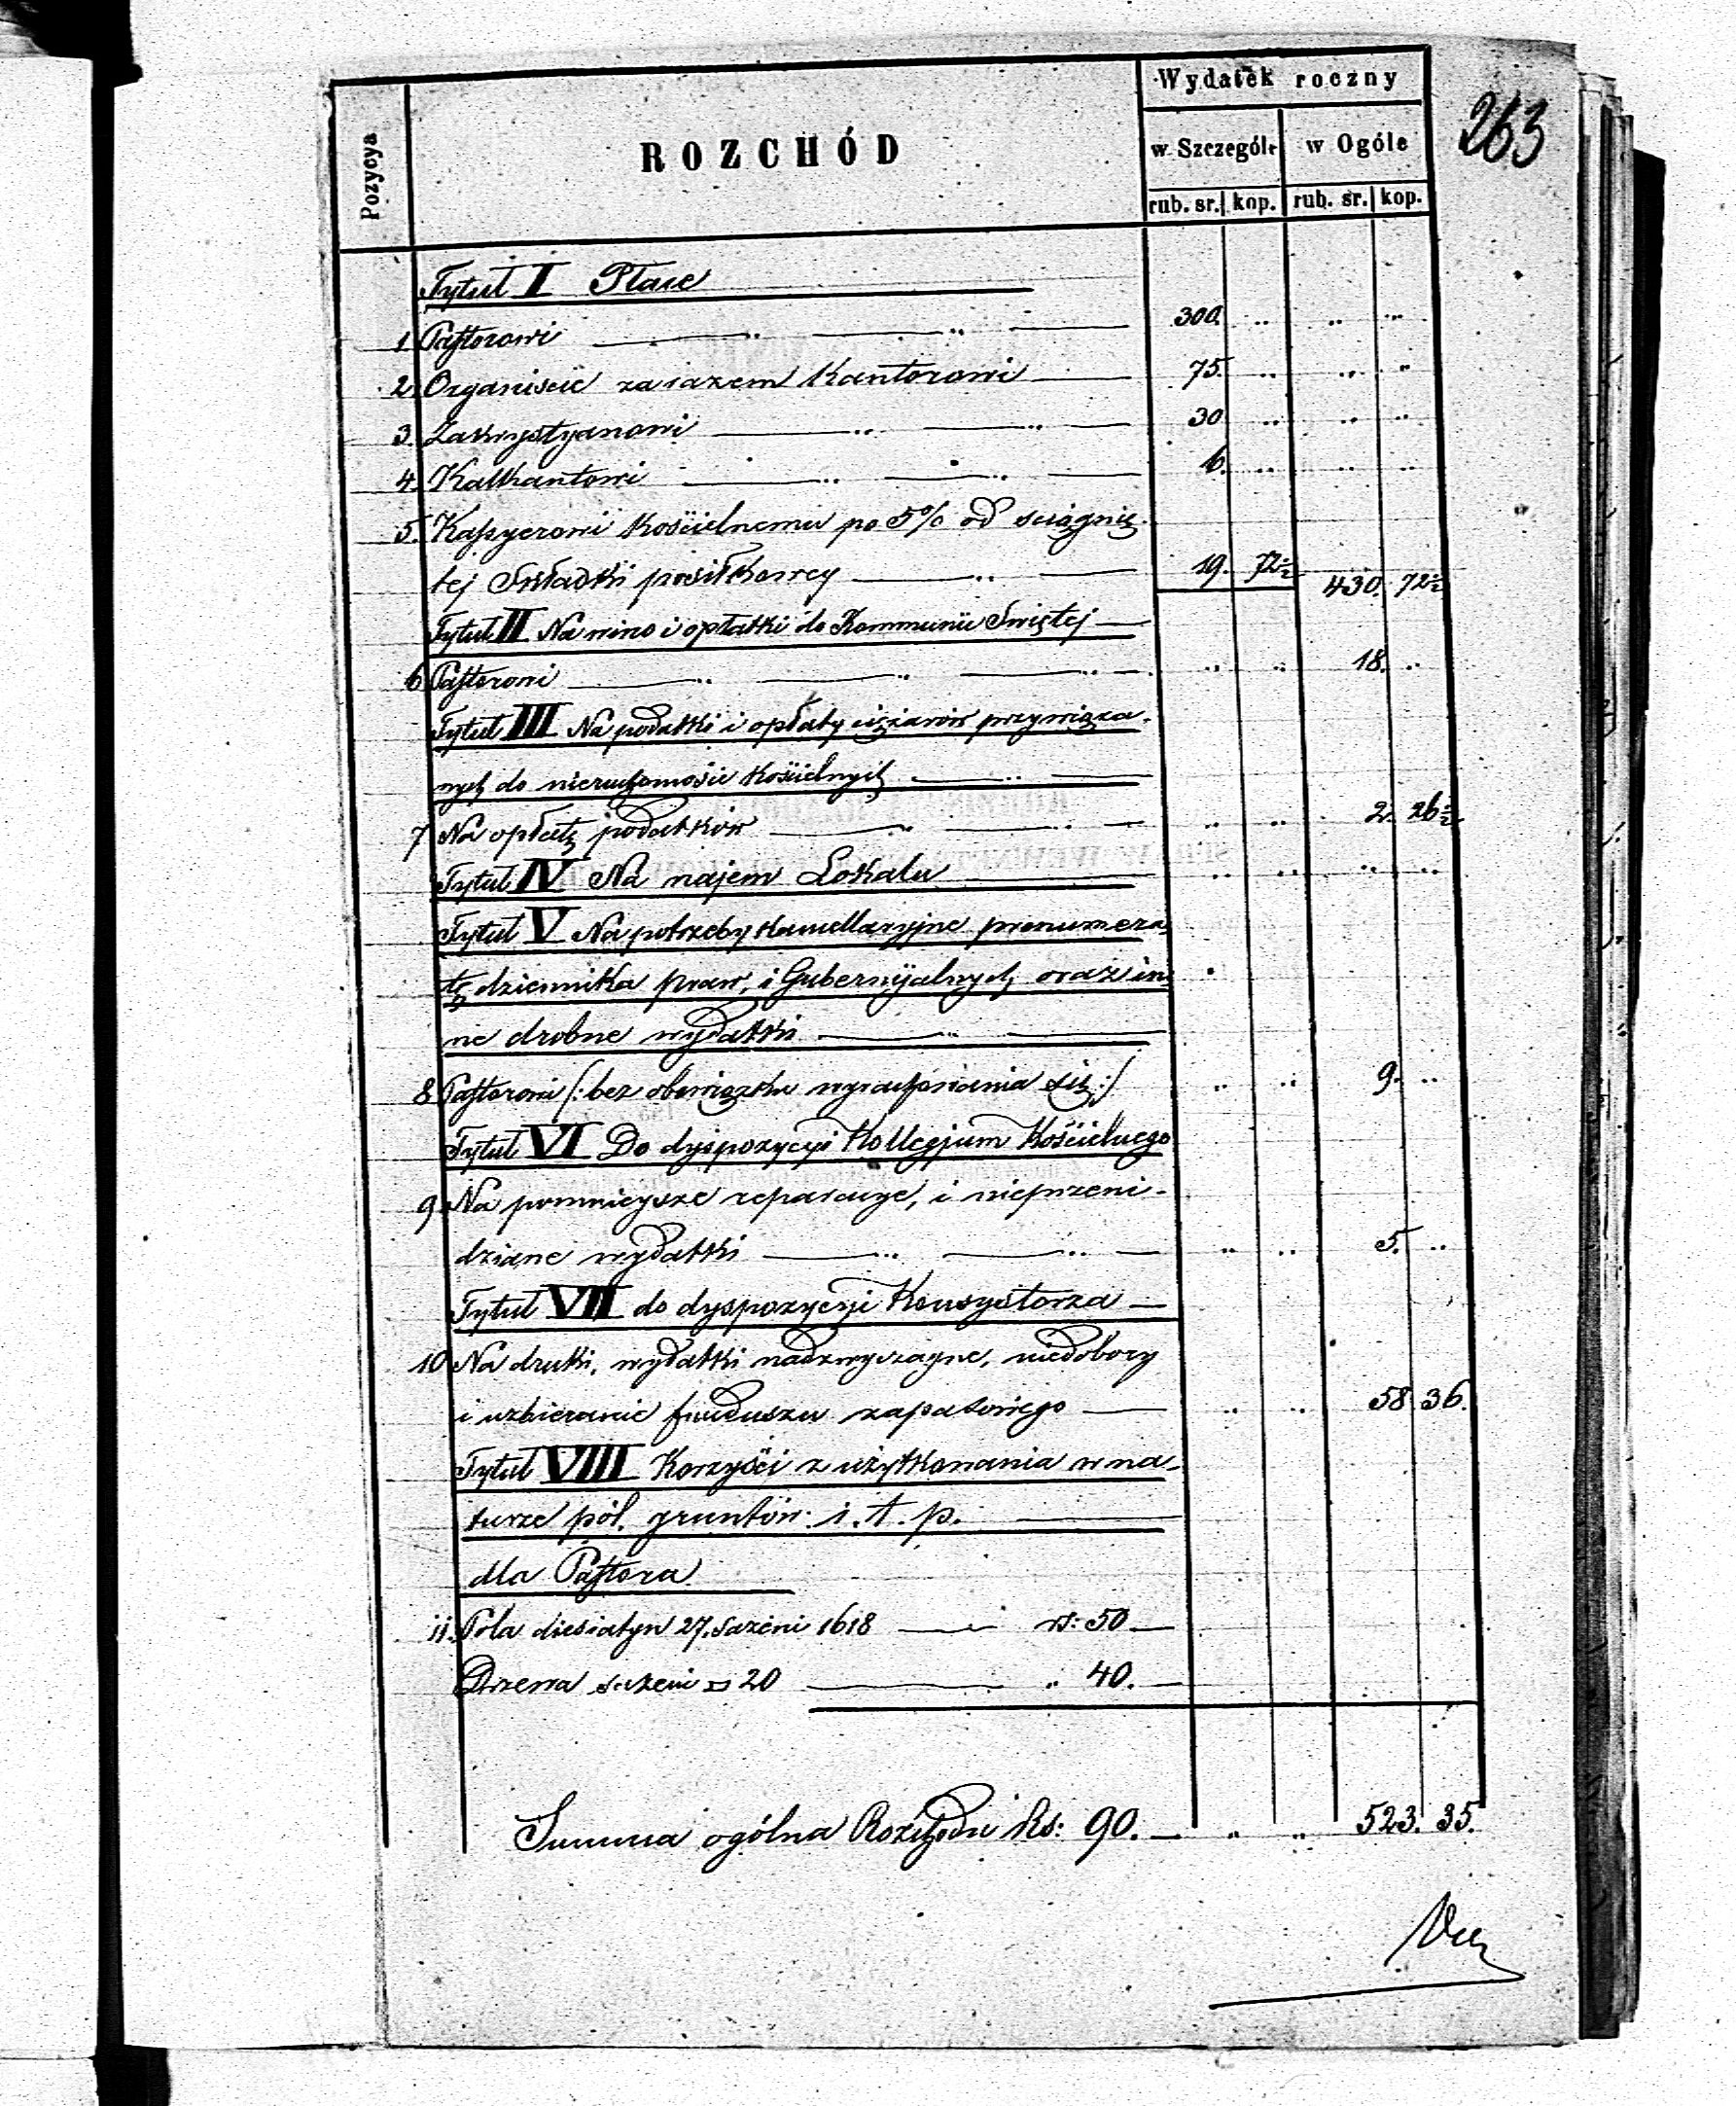 263
Pozycya
ROZCHÓD
Wydatek roczny
w Szczególe w Ogóle
rub. sr. kop. rub. sr. kop.
Tytuł I Płace
1 Pastorowi 300. " " "
2. Organiście zarazem Kantorowi 75. " " "
3. Zakrystyanowi 30 " " "
4. Kalkantowi 6. " " "
5. Kassyerowi Kościelnemu po 5% od ściągnię-
tej Składki posiłkowey 19. 72½ 430. 72½
Tytuł II Na wino i opłatki do Kommunii Swiętej
6 Pastorowi " " 18. "
Tytuł III Na podatki i opłaty ciężarów przywiąza-
nych do nieruchomości Kościelnych
7 Na opłatę podatków " " 2. 26½
Tytuł IV Na najem Lokalu " " " "
Tytuł V Na potrzeby Kancellaryjne prenumera-
tę dziennika praw, i Gubernijalnych oraz in-
ne drobne wydatki
8 Pastorowi (: bez obowiązku wyrachowania się :) " " 9. "
Tytuł VI Do dyspozycyi Kollegjum Kościelnego
9 Na pomnieysze reparacye, i nieprzewi-
dziane wydatki " " 5. "
Tytuł VII do dyspozycyi Konsystorza
10 Na druki, wydatki nadzwyczayne, niedobory
i uzbieranie funduszu zapasowego " " 58 36.
Tytuł VIII Korzyści z użytkowania w na-
turze pól, gruntów i. t. p.
dla Pastora
11. Pola diesiatyn 27. sażeni 1618 rs: 50
Drzewa sażeni □ 20 " 40.
Summa ogólna Rozchodu Rs: 90. " " 523. 35.